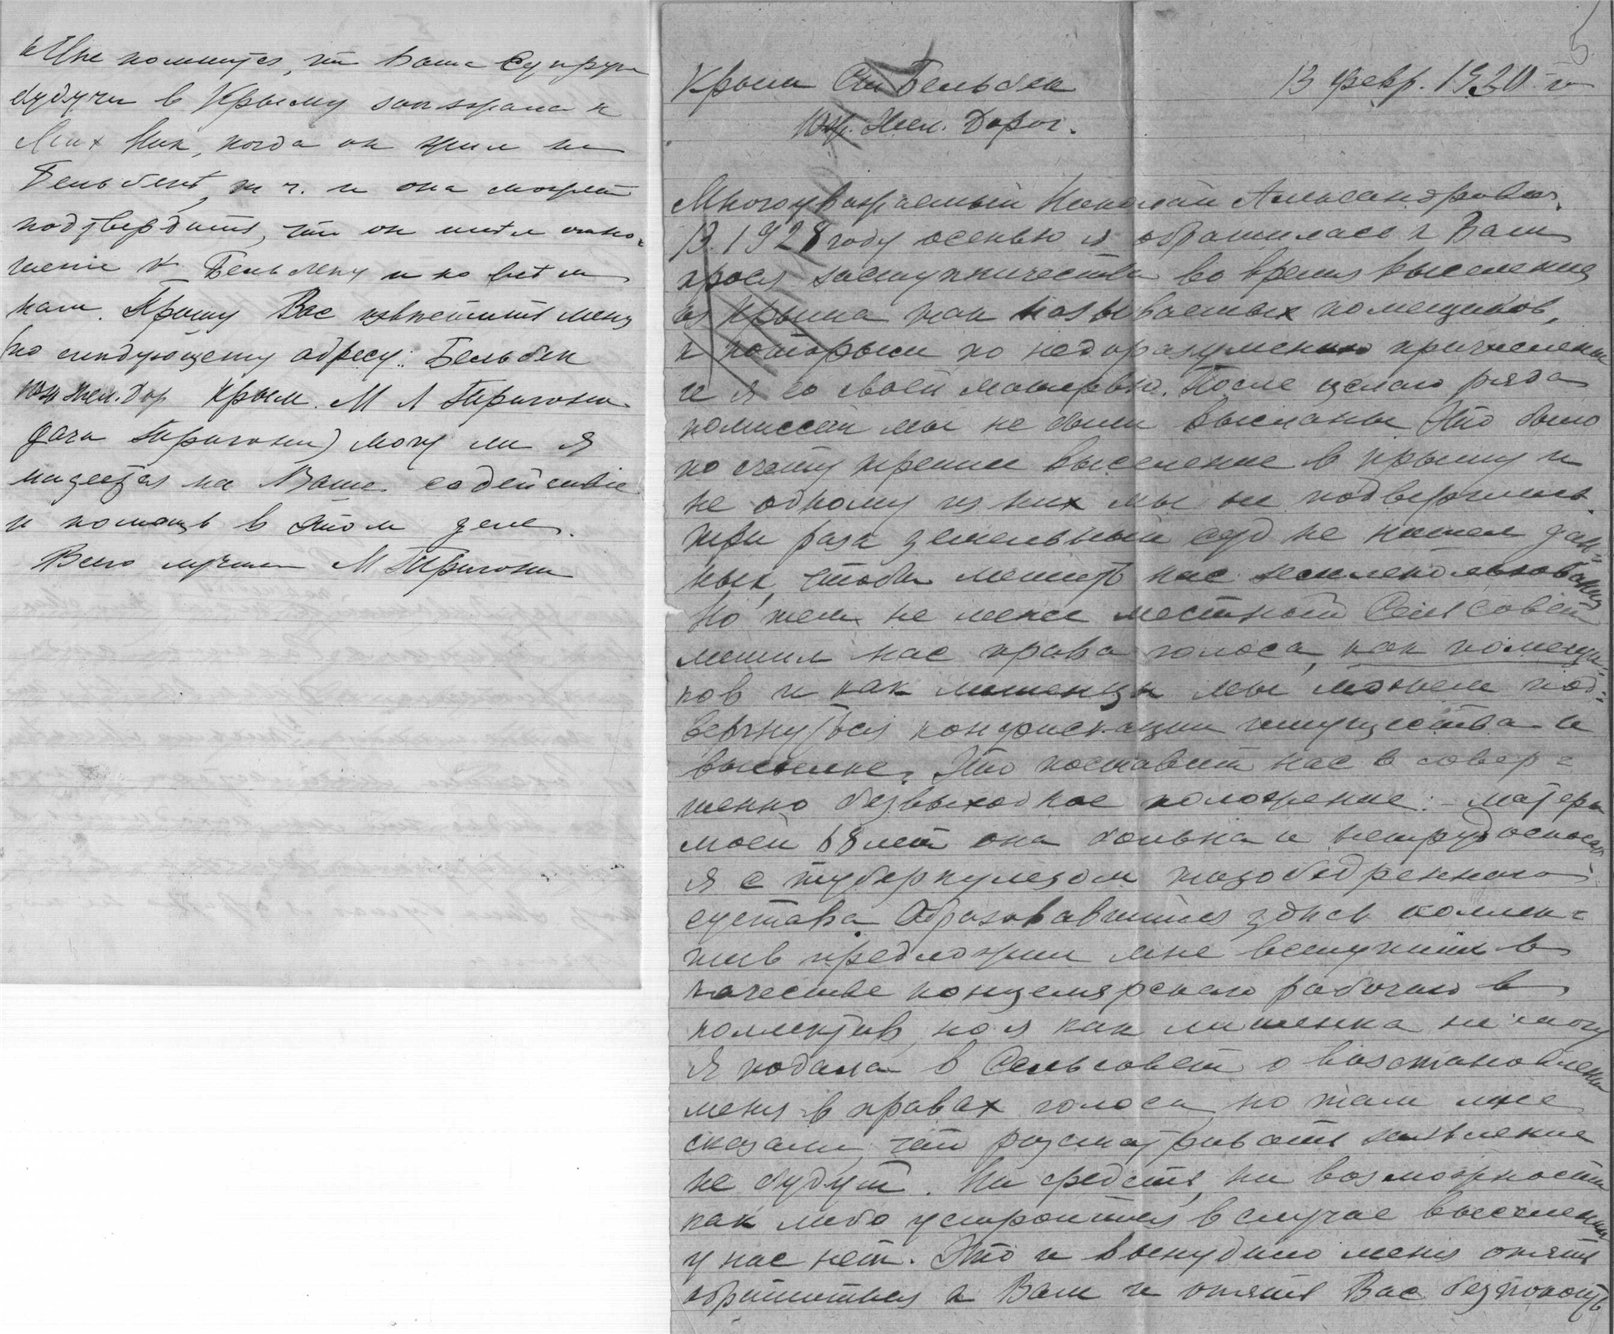 5.
Крым Ст. Бельбек 13 февр. 1930 г
Юж. Жел. Дорог.
Многоуважаемый Николай Александрович.
В 1928 году осенью я обратилась к Вам
прося заступничества во время выселения
из Крыма так называемых помещиков,
к которым по недоразумению причислены
и я со своей матерью. После целого ряда
комиссий мы не были высланы Это было
по счету третье выселение в Крыму и
не одному из них мы не подверглись.
три раза земельный суд не нашел дан-
ных, чтобы лишить нас землепользования
Но тем не менее местный Сельсовет
лишил нас права голоса, как помещи-
ков и как лишенцы мы можем под-
вергнуться конфискации имущества и
высылке. Это поставит нас в совер-
шенно безвыходное положение: - матери
моей 68 лет она больна и нетрудоспособна
я с туберкулезом тазобедренного
сустава Образовавшийся здесь коллек-
тив предложил мне вступить в
качестве канцелярского рабочего в
коллектив, но я как лишенка не могу
Я подала в Сельсовет о восстановлении
меня в правах голоса, но там мне
сказали, что рассматривать заявление
не будут. Ни средств, ни возможности
как либо устроиться в случае выселения
у нас нет. Это и вынудило меня опять
обратиться к Вам и опять Вас безпокоить
Мне помнится, что Ваша Супруга
будучи в Крыму заезжала к
Мих Ник, когда он жил на
Бельбеке, т ч. и она может
подтвердить, что он имел отно-
шение к Бельбеку и ко всем
нам. Прошу Вас известить меня
(по следующему адресу: Бельбек
юж жел. дор Крым. М Л Тригони
дача Тригони) могу ли я
надеяться на Ваше содействие
и помощь в этом деле.
Всего лучшего М Тригони